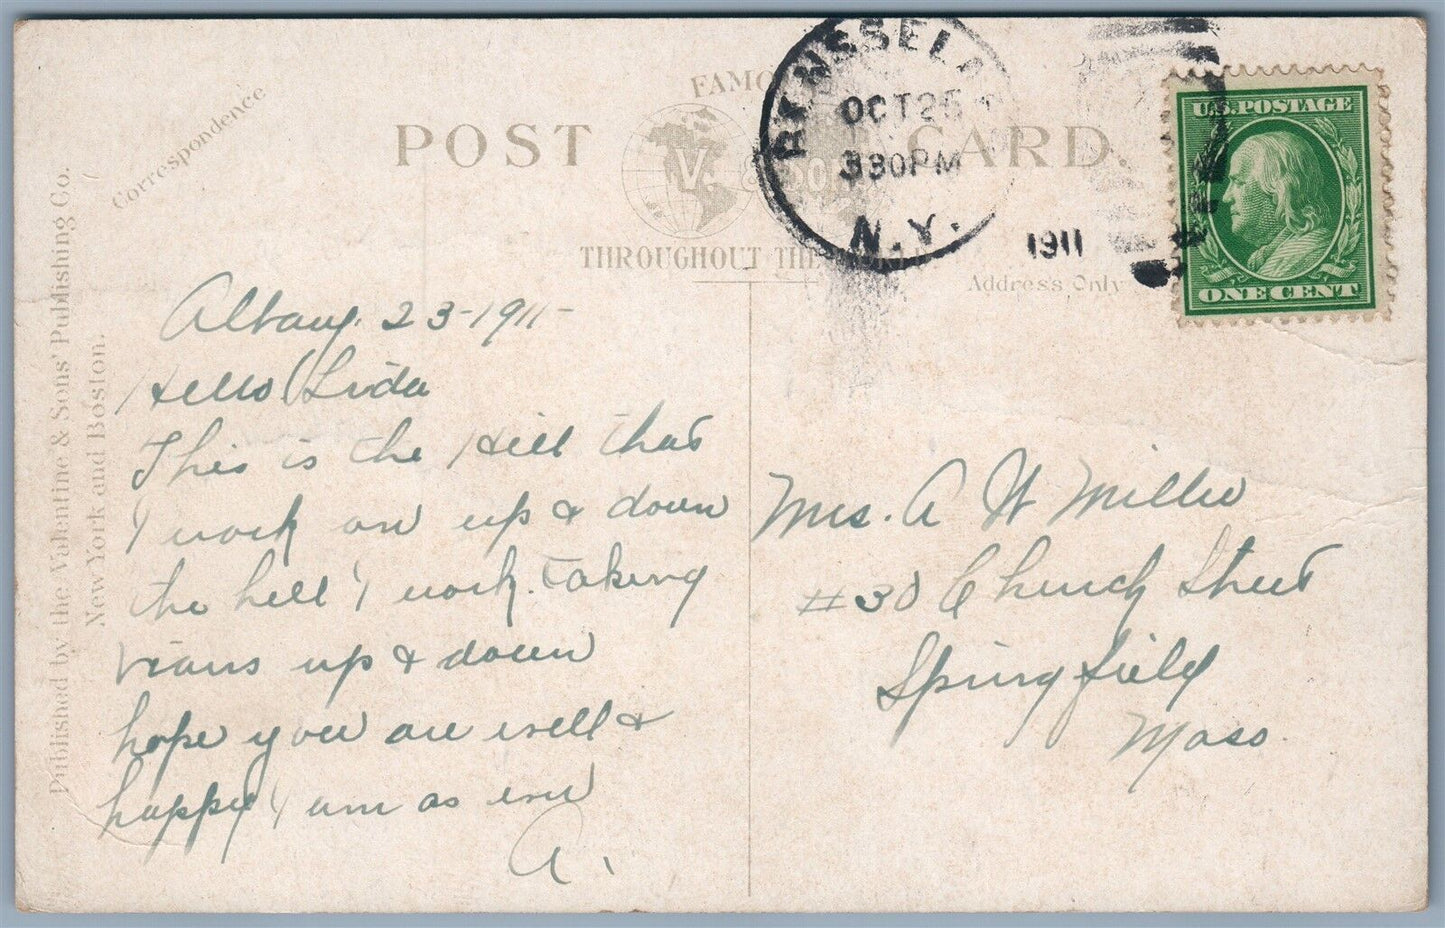 Correspondence
POST CARD
FAMO
V. & SON
THROUGHOUT THE
Address Only
Published by the Valentine & Sons' Publishing Co.
New York and Boston.
RENSSELA
OCT 25
330PM
N.Y.
1911
U.S. POSTAGE
ONE CENT
Albany. 23-1911-
Hello Lida
This is the Hill that
I work on up & down
the hill I work. taking
up & down
hope you are well &
happy I am as ever
A.
Mrs. A W Miller
#30 Church Street
Springfield
Mass.